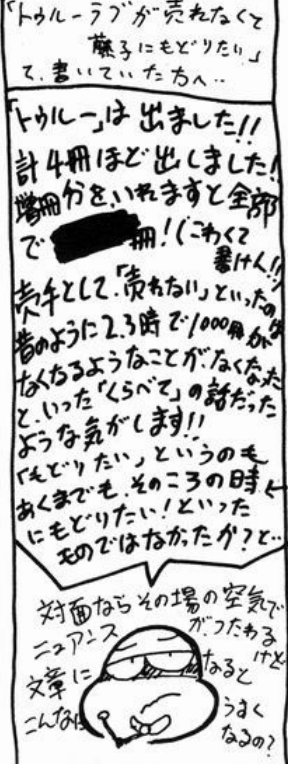 「トゥルーラブが売れなくて
藤子にもどりたい」
て、書いていた方へ‥
「トゥルー」は出ました!!
計4冊ほど出しました!
増冊分を、いれますと全部
で 冊!(こわくて
書けん!!)
売手として、「売れない」といったのは
昔のように2.3時で1000冊が
なくなるようなことが、なくなった
と、いった「くらべて」の話だった
ような気がします!!
「もどりたい」というのも
あくまでも、そのころの時←
にもどりたい!といった
ものではなかったか?と‥
対面ならその場の空気で
ニュアンスがつたわるけど
文章になると
こんなにうまく
なるの?